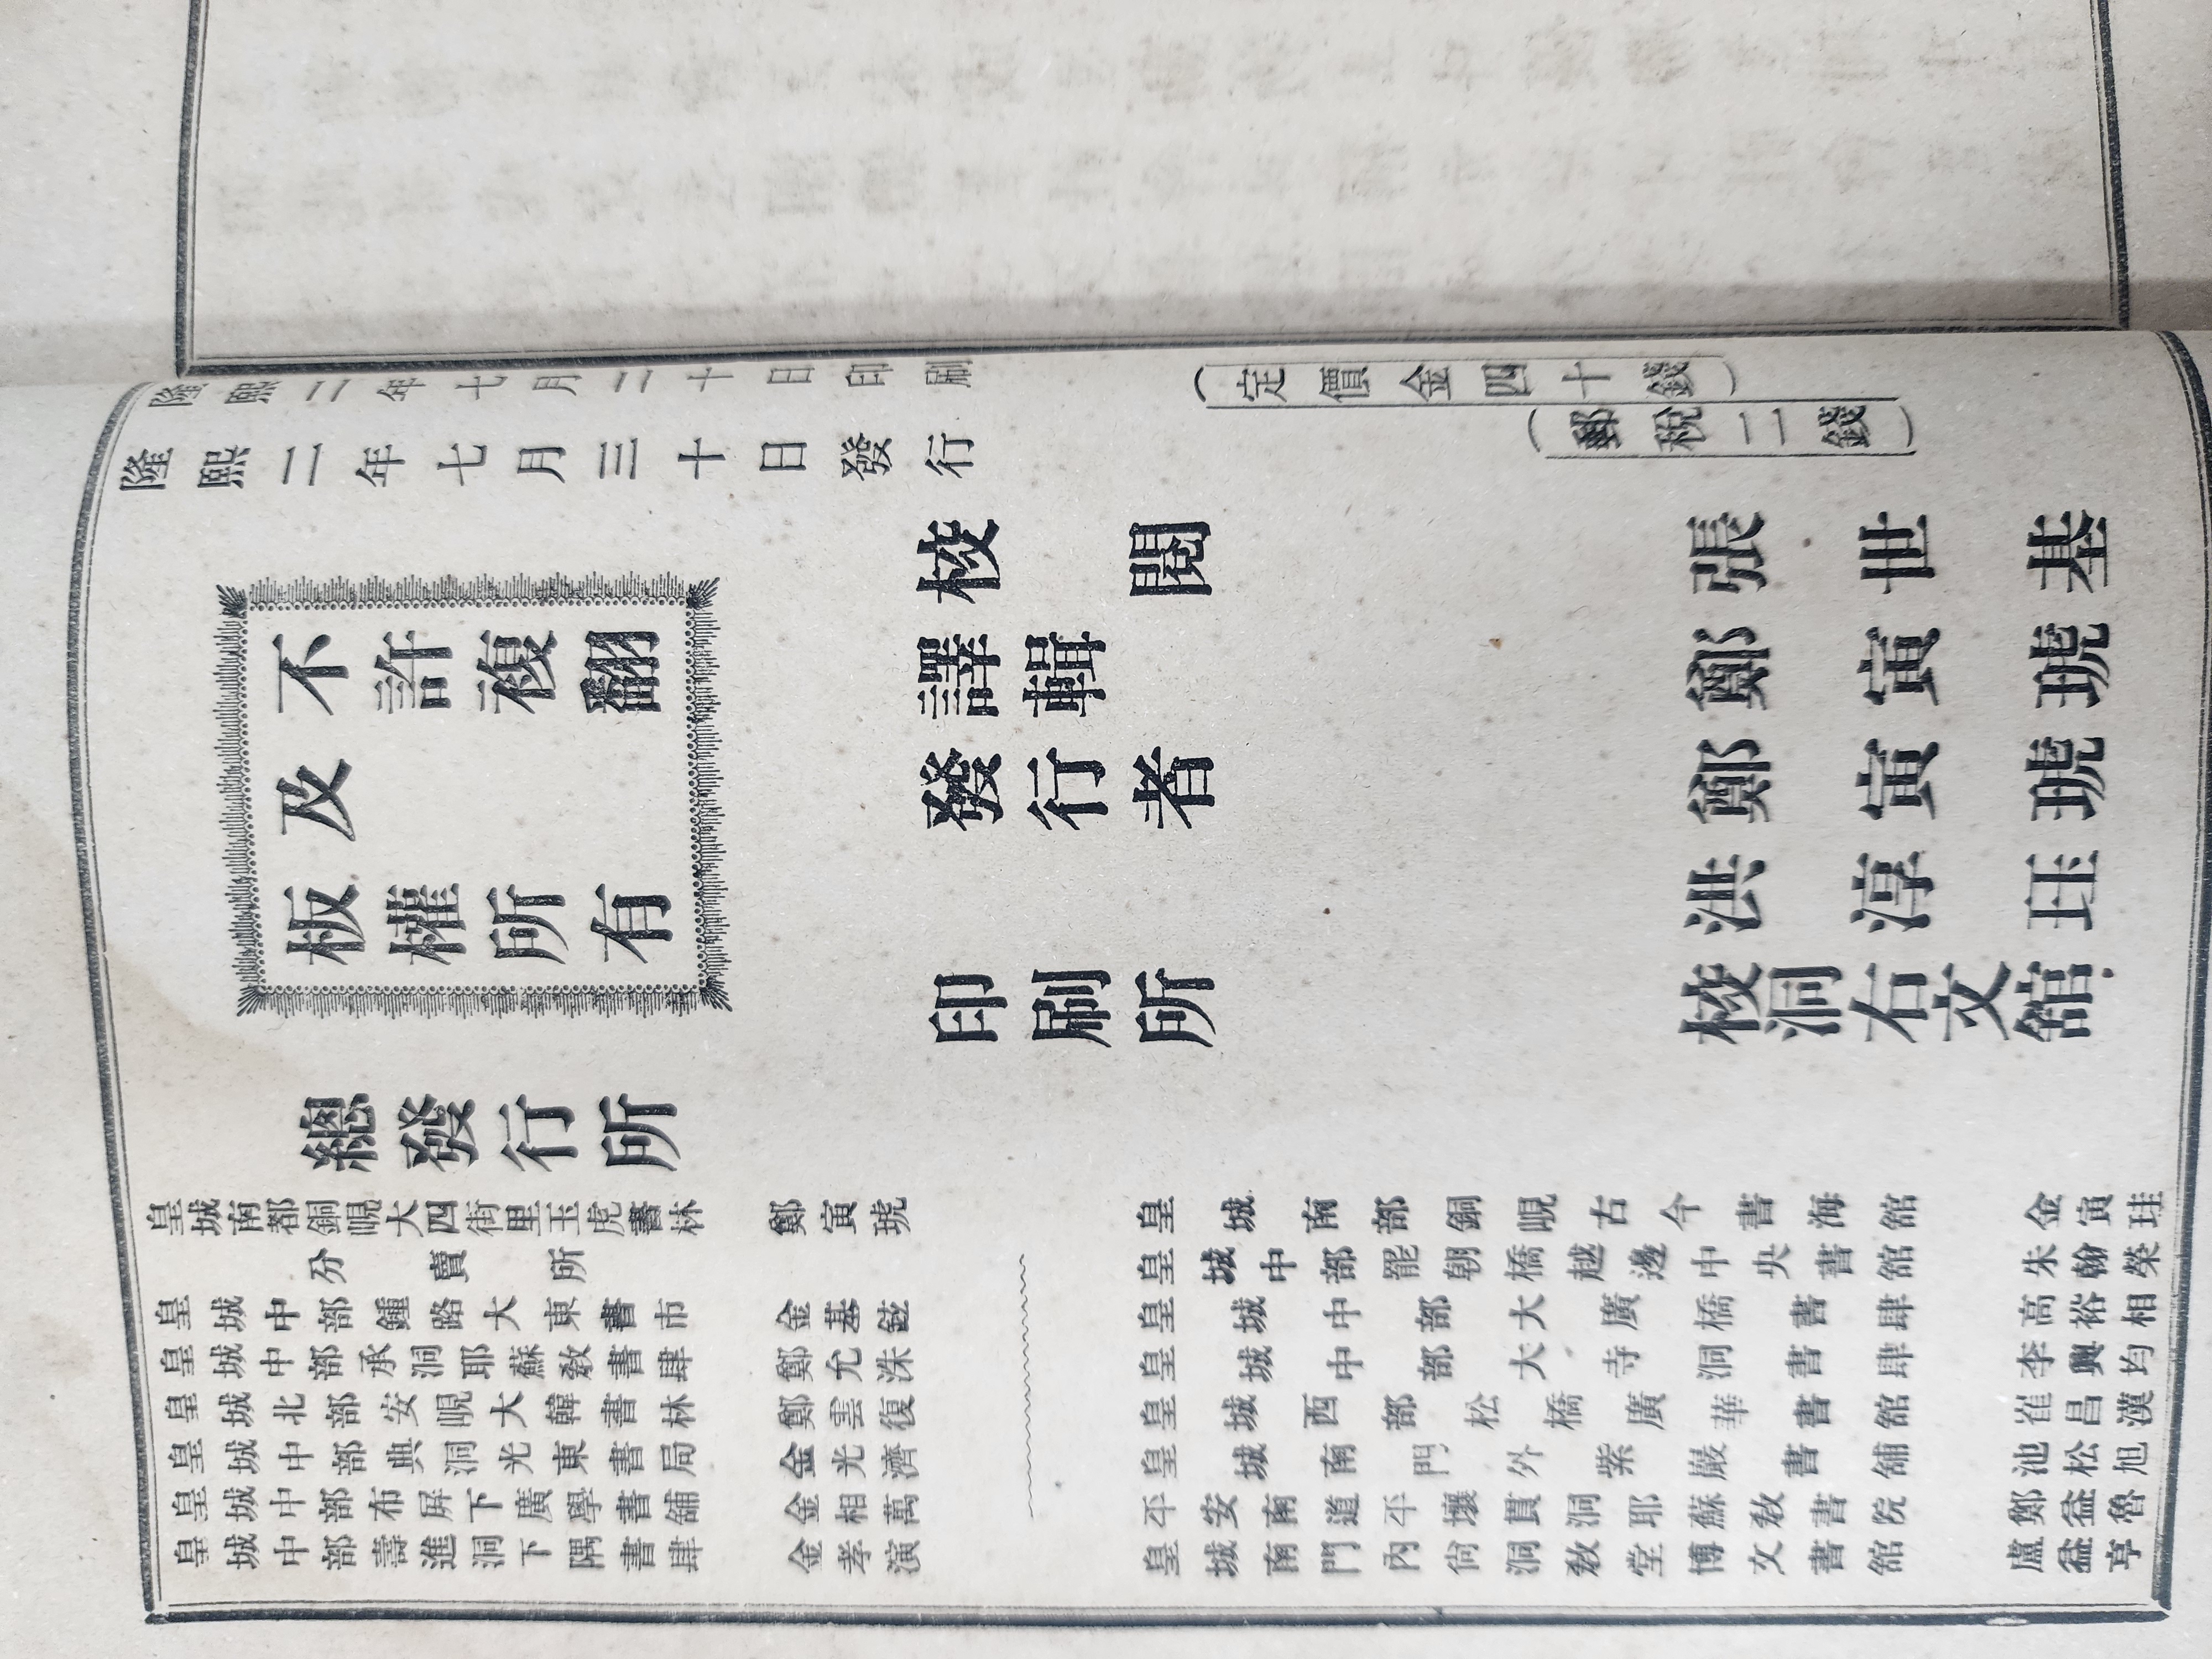 隆熙二年七月二十日印刷
(定價金四十錢)
隆熙二年七月三十日發行
(郵稅二錢)
不許複翻
及
板權所有
校閱 張世基
譯輯 鄭寅琥
發行者 鄭寅琥
洪淳珏
印刷所 校洞右文舘
總發行所
皇城南都銅峴大四街里玉虎書林 鄭寅琥
分賣所
皇城中部鍾路大東書市 金基鉉
皇城中部承洞耶蘇敎書肆 鄭允洙
皇城北部安峴大韓書林 鄭雲復
皇城中部典洞光東書局 金光濟
皇城中部布屏下廣學書舖 金相萬
皇城中部壽進洞下隅書肆 金孝演
皇城南部銅峴古今書海舘 金寅珪
皇城中部罷朝橋越邊中央書舘 朱翰榮
皇城中部大廣橋書肆 高裕相
皇城中部大寺洞書肆 李興均
皇城西部松橋廣華書舘 崔昌漢
皇城南門外紫巖書舖 池松旭
平安南道平壤貫洞耶蘇敎書院 鄭益魯
皇城南門內尙洞敎堂博文書舘 盧益亨